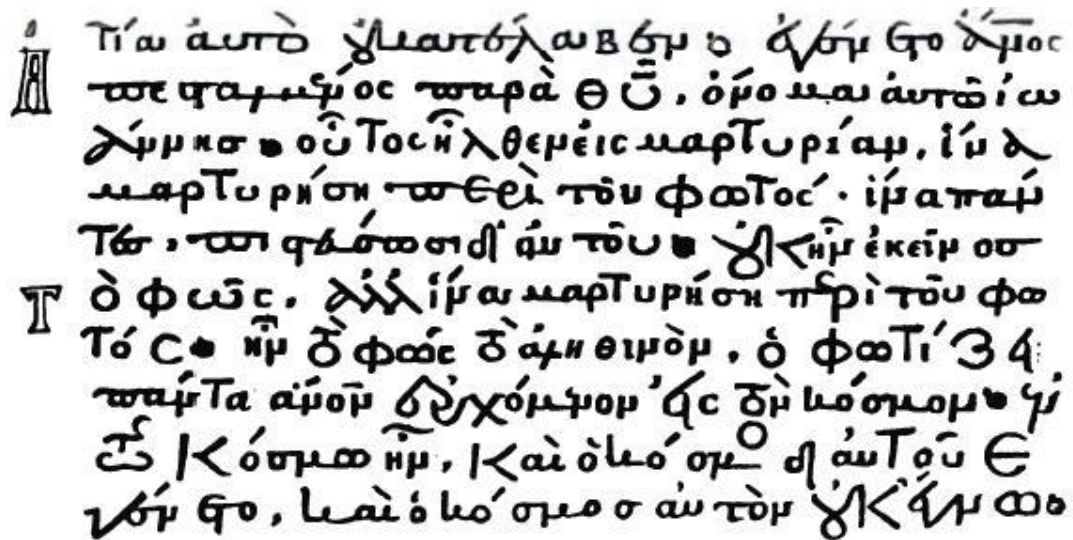 τία αὐτὸ οὐ κατέλαβεν· ἐγένετο ἄνος
ἀπεσταλμένος παρὰ θυ, ὄνομα αὐτῶ ἰω
άννης· οὗτος ἦλθεν εἰς μαρτυρίαν, ἵνα
μαρτυρήση περὶ τοῦ φωτός· ἵνα πάν
τες, πιστεύσωσι δι αὐτοῦ· οὐκ ἦν ἐκεῖνος
τὸ φῶς, ἀλλ ἵνα μαρτυρήση περὶ τοῦ φω
τός· ἦν τὸ φῶς τὸ ἀληθινὸν, ὁ φωτίζει
πάντα ἄνον ἐρχόμενον εἰς τὸν κόσμον· ἐν
τῶ κόσμω ἦν, καὶ ὁ κόσμος δι αὐτοῦ ἐ
γένετο, καὶ ὁ κόσμος αὐτὸν οὐκ ἔγνω·